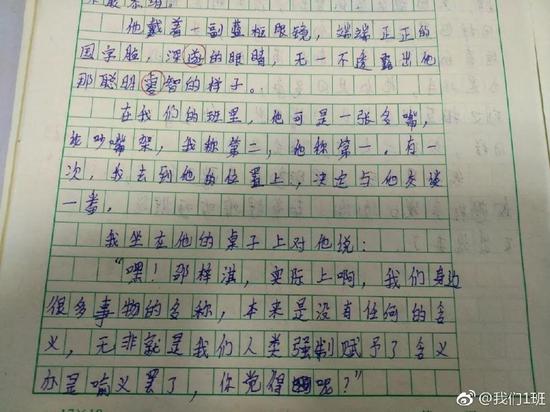 他戴着一副蓝框眼镜，端端正正的
国字脸，深邃的眼睛，无一不透露出他
那聪明睿智的样子。
在我们的班里，他可是一张多嘴，
论吵嘴架，我称第二，他称第一，有一
次，我去到他的位置上，决定与他交谈
一番。
我坐在他的桌子上对他说：
“嘿！那样淇，实际上啊，我们身边
很多事物的名称，本来是没有任何的含
义，无非就是我们人类强制赋予了含义
亦是喻义罢了，你觉得呢？”
@我们1班